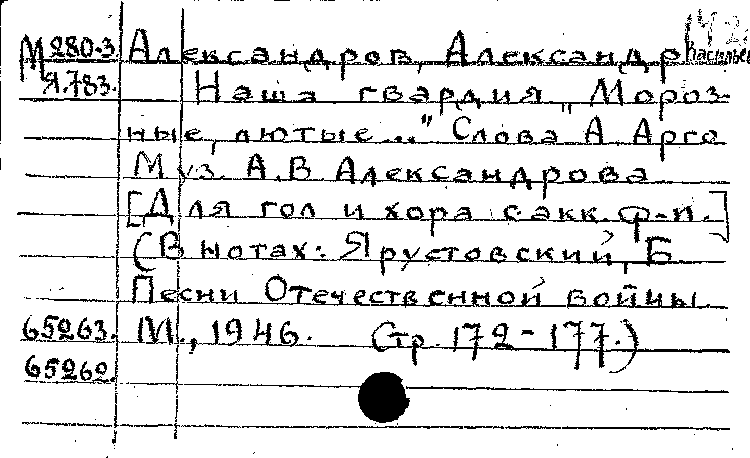 М 280-3 Александров, Александр Василье
Я.783. Наша гвардия „Мороз-
ные, лютые..." Слова А. Арго
Муз. А.В. Александрова
[Для гол и хора с акк. ф-п.]
(В нотах: Ярустовский, Б.
Песни Отечественной войны
65263. М., 1946. Стр. 172-177.)
65262.